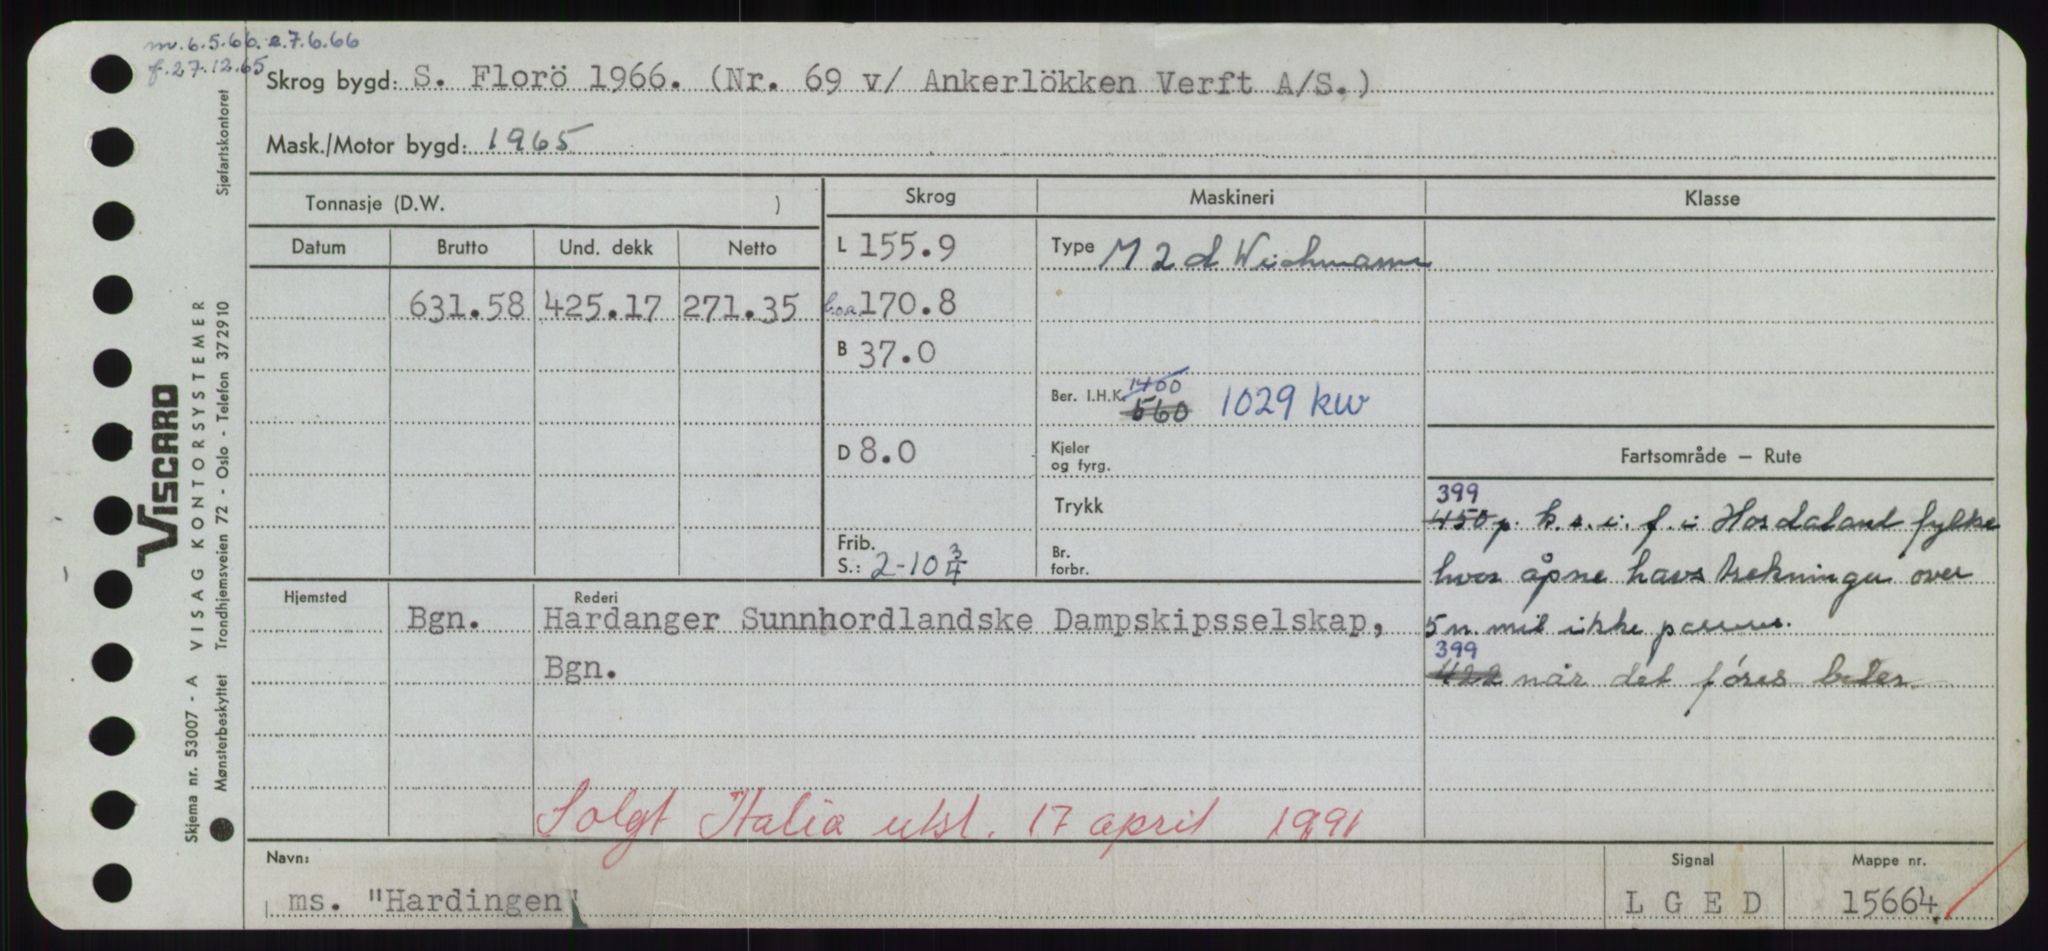 m. 6.5.66. e. 7.6.66
f. 27.12.65
Skrog bygd: S. Florö 1966. (Nr. 69 v/ Ankerlökken Verft A/S.)
Mask./Motor bygd: 1965
Tonnasje (D.W. )
Skrog Maskineri Klasse
Datum Brutto Und. dekk Netto
L 155.9
Type M 2 d Wichmann
631.58 425.17 271.35
l.o.a. 170.8
B 37.0
Ber. I.H.K. 1400 560 1029 kw
D 8.0
Kjeler og fyrg.
Trykk
Frib. S.: 2-10 3/4
Br. forbr.
Fartsområde — Rute
399
450 p. k.s.i.f. i Hordaland fylke
hvor åpne havstrekninger over
5 n. mil ikke passeres.
399
422 når det föres biler.
Hjemsted Rederi
Bgn. Hardanger Sunnhordlandske Dampskipsselskap,
Bgn.
Solgt Italia utsl. 17 april 1991
Navn: Signal Mappe nr.
ms. "Hardingen" L G E D 15664
Sjøfartskontoret
VISCARD
VISAG KONTORSYSTEMER
Skjema nr. 53007 - A
Mønsterbeskyttet Trondhjemsveien 72 - Oslo - Telefon 372910